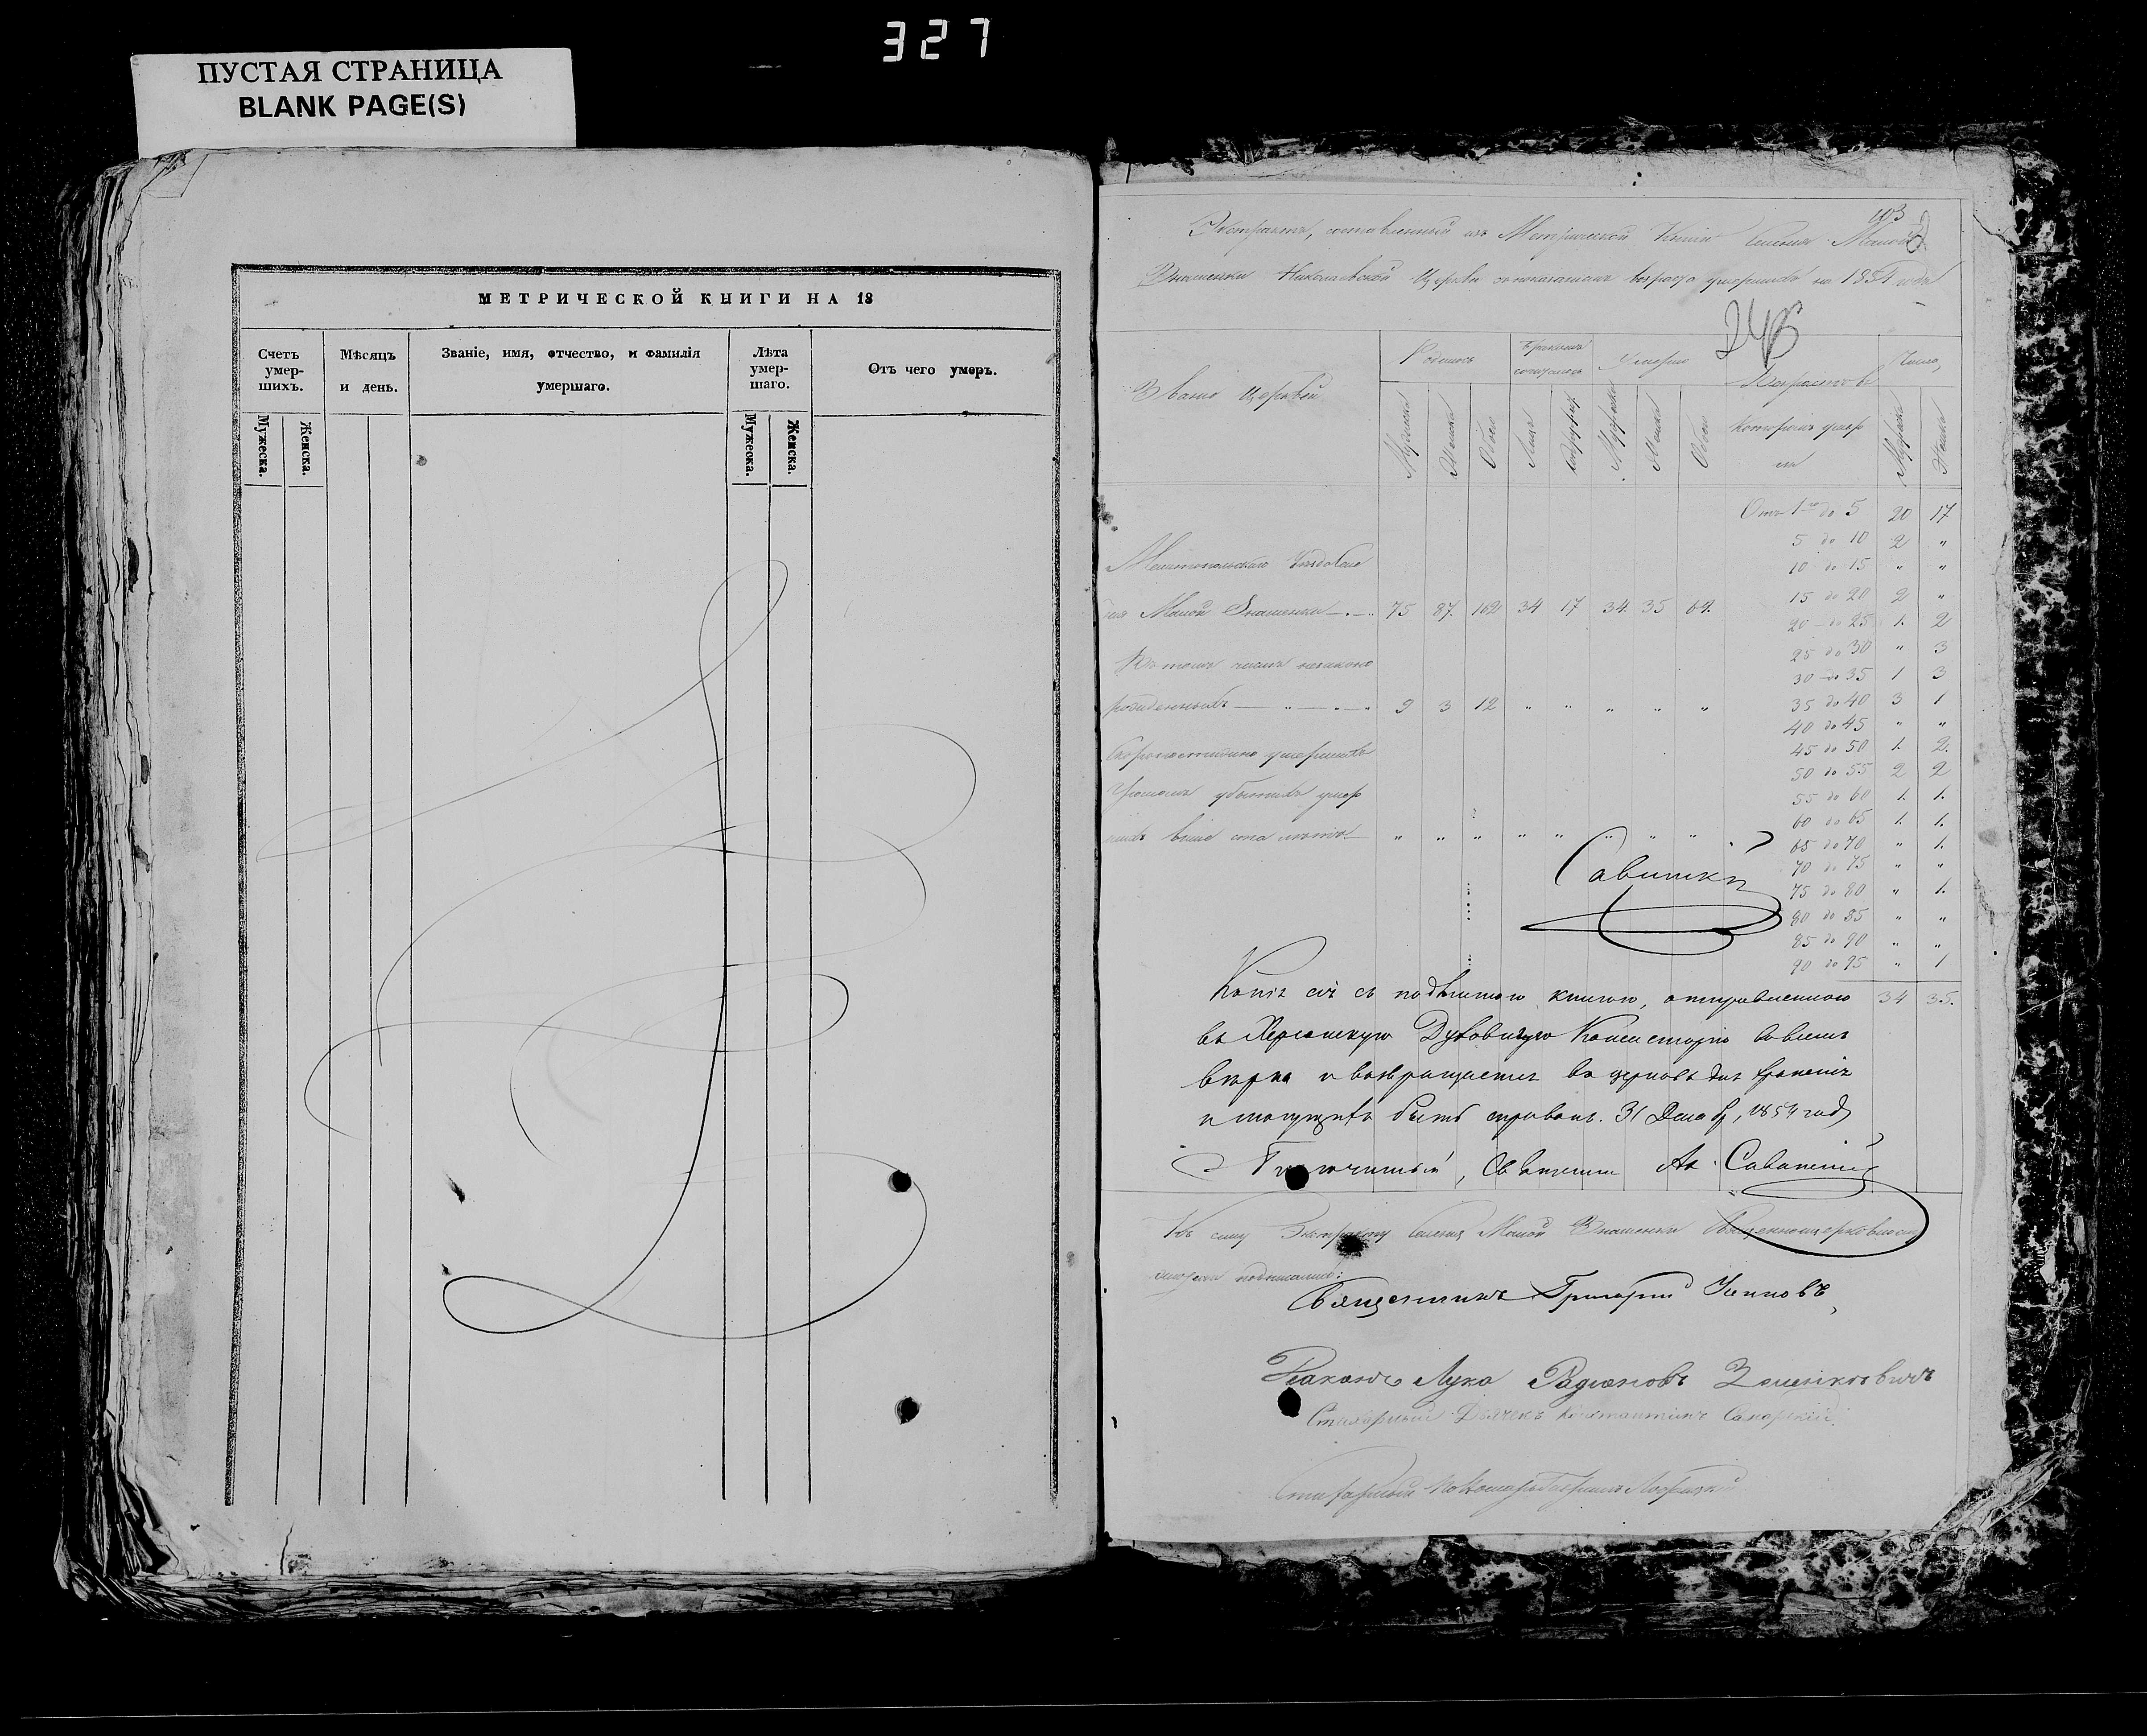 327
ПУСТАЯ СТРАНИЦА
BLANK PAGE(S)
МЕТРИЧЕСКОЙ КНИГИ НА 18
Счетъ умер-шихъ.
Мѣсяцъ и день.
Званіе, имя, отчество, и фамилія умершаго.
Лѣта умер-шаго.
Отъ чего умеръ.
Мужеска.
Женска.
Мужеска.
Женска.
103
Экстрактъ, составленный изъ Метрической Книги селенія Малой
Знаменки Николаевской Церкви съ показаніемъ возраста умершихъ на 1854 годъ
Званіе Церквей
Родилось
Умерло
Число
которыхъ умер
ли
Мужеска
Женска
Обоего
Лицъ
Отъ 1го до 5 20 17
5 до 10 2 "
10 до 15 " "
15 до 20 2 "
20 до 25 1. 2
25 до 30 " 3
30 до 35 1 3
35 до 40 3 1
40 до 45 " "
45 до 50 1. 2.
50 до 55 2 2
55 до 60 1. 1.
60 до 65 1. 1.
65 до 70 " 1.
70 до 75 " "
75 до 80 " 1.
80 до 85 " "
85 до 90 " "
90 до 95 " 1
34 35.
Мелитопольскаго Уѣзда Селе
нія Малой Знаменки 75 87. 162 34 17 34. 35 69.
Въ томъ числѣ незаконно
рожденныхъ 9 3 12 " " " " "
Скоропостижно умершихъ
убитыхъ умер
шихъ выше ста лѣтъ " " " " " " " "
Савицкій
Копія сія съ подлинною книгою, отправленною
въ Херсонскую Духовную Консисторію во всемъ
вѣрна и возвращается въ церковь для храненія
быть 31 Декабр, 1854 год
Благочинный, Священникъ
Къ сему Экстракту селенія Малой Знаменки Священноцерковнослу
жители подписались:
Священникъ Григорій
Диаконъ Лука
Дьячекъ Константинъ